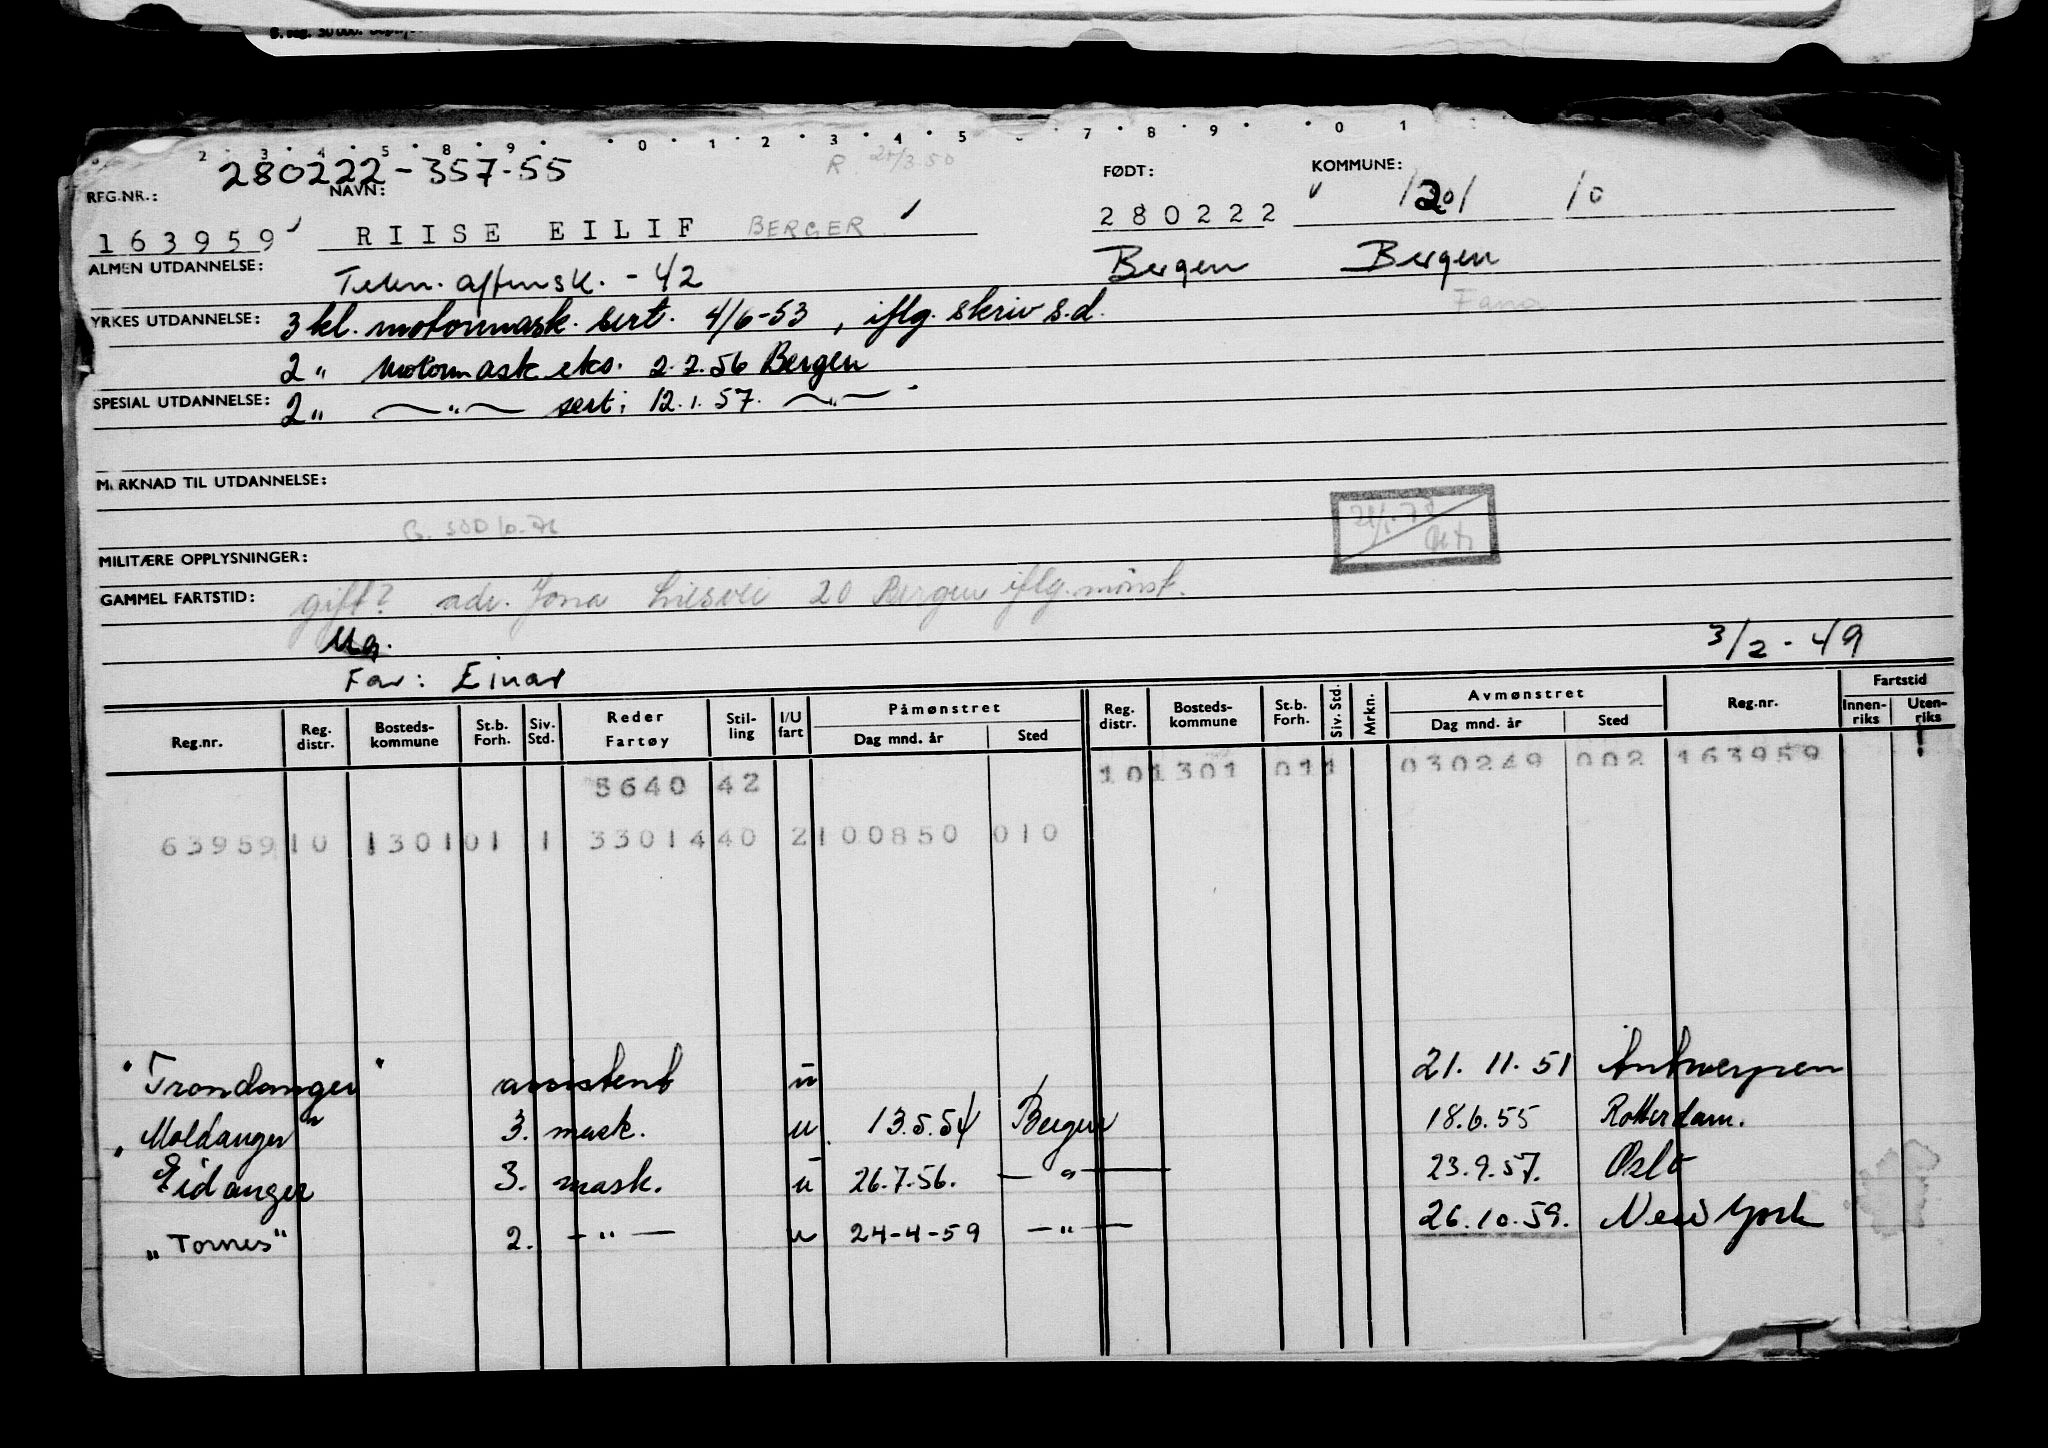 2 · 3 · 4 · 5 · 8 · 9 · · 0 · 1 · 2 · 3 · 4 · 5 · 7 · 8 · 9 · · 0 1
280222-357-55
R 21/3.50
FØDT:
KOMMUNE:
REG.NR.:
NAVN:
163959
RIISE EILIF BERGER
280222
1201 10
ALMEN UTDANNELSE:
Tekn. aftensk. - 42
Bergen
Bergen
Fana
YRKES UTDANNELSE:
3 kl. motormask. sert. 4/6-53, iflg. skriv s.d.
2 " motormask eks. 2.2.56 Bergen
SPESIAL UTDANNELSE:
2 " —"— sert: 12.1.57. —"—
MERKNAD TIL UTDANNELSE:
MILITÆRE OPPLYSNINGER:
GAMMEL FARTSTID:
gift? adr. 20 Bergen iflg. mønst.
Ug.
3/2-49
Far: Einar
Reg.nr.
Reg. distr.
Bosteds-kommune
St.b. Forh.
Siv. Std.
Reder Fartøy
Stil-ling
I/U fart
Påmønstret
Dag mnd. år
Sted
Reg. distr.
Bosteds-kommune
St.b. Forh.
Siv. Std.
Mrkn.
Avmønstret
Dag mnd. år
Sted
Reg.nr.
Fartstid
Innen-riks
Uten-riks
5640 42 101301 011 030249 002 163959
63959 10 1301 01 1 3301440 2 100850 010
"Trondanger" assistent u 21.11.51 Antwerpen
"Moldanger" 3. mask. u 13.5.54 Bergen 18.6.55 Rotterdam.
Eidanger 3. mask. u 26.7.56. —"— 23.9.57. Oslo
"Tornes" 2. —"— u 24-4-59 —"— 26.10.59. New York